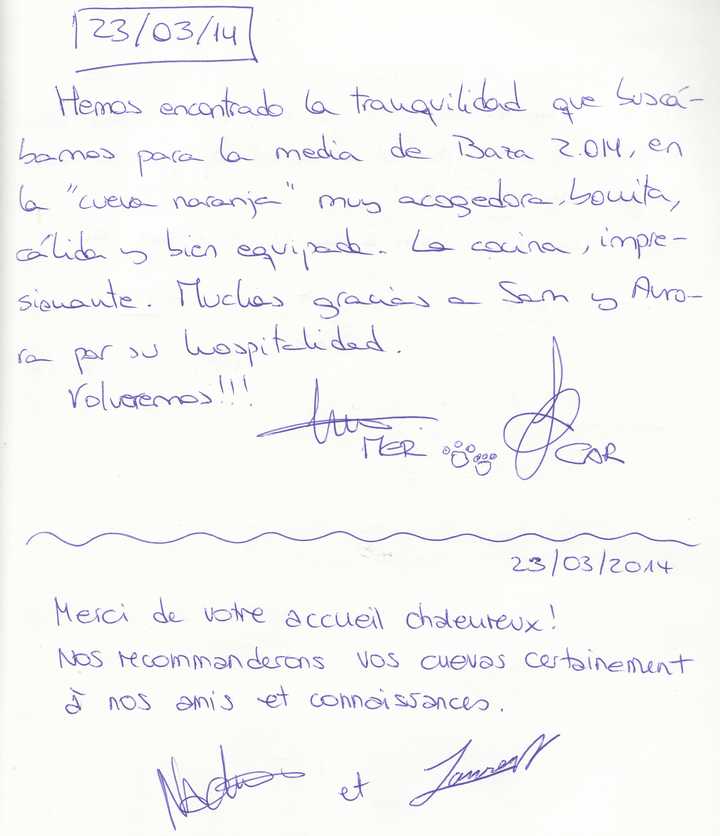 23/03/14
Hemos encontrado la tranquilidad que buscá-
bamos para la media de Baza 2.014, en
la "cueva naranja" muy acogedora, bonita,
cálida y bien equipada. La cocina, impre-
sionante. Muchas gracias a Sam y Auro-
ra por su hospitalidad.
Volveremos!!!
MER
CAR
23/03/2014
Merci de votre accueil chaleureux!
Nos recommanderons vos cuevas certainement
à nos amis et connaissances.
et Laurent